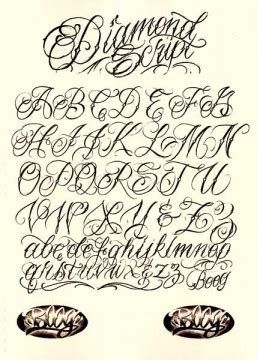 Diamond
Script
A B C D E F G
H I J K L M N
O P Q R S T U
V W X Y & Z
a b c d e f g h i j k l m n o p
q r s t u v w x y z z Boog
Boog Boog